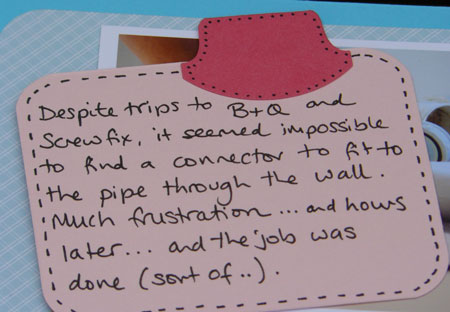 Despite trips to B+Q and
Screwfix, it seemed impossible
to find a connector to fit to
the pipe through the wall.
Much frustration... and hours
later... and the job was
done (sort of..).